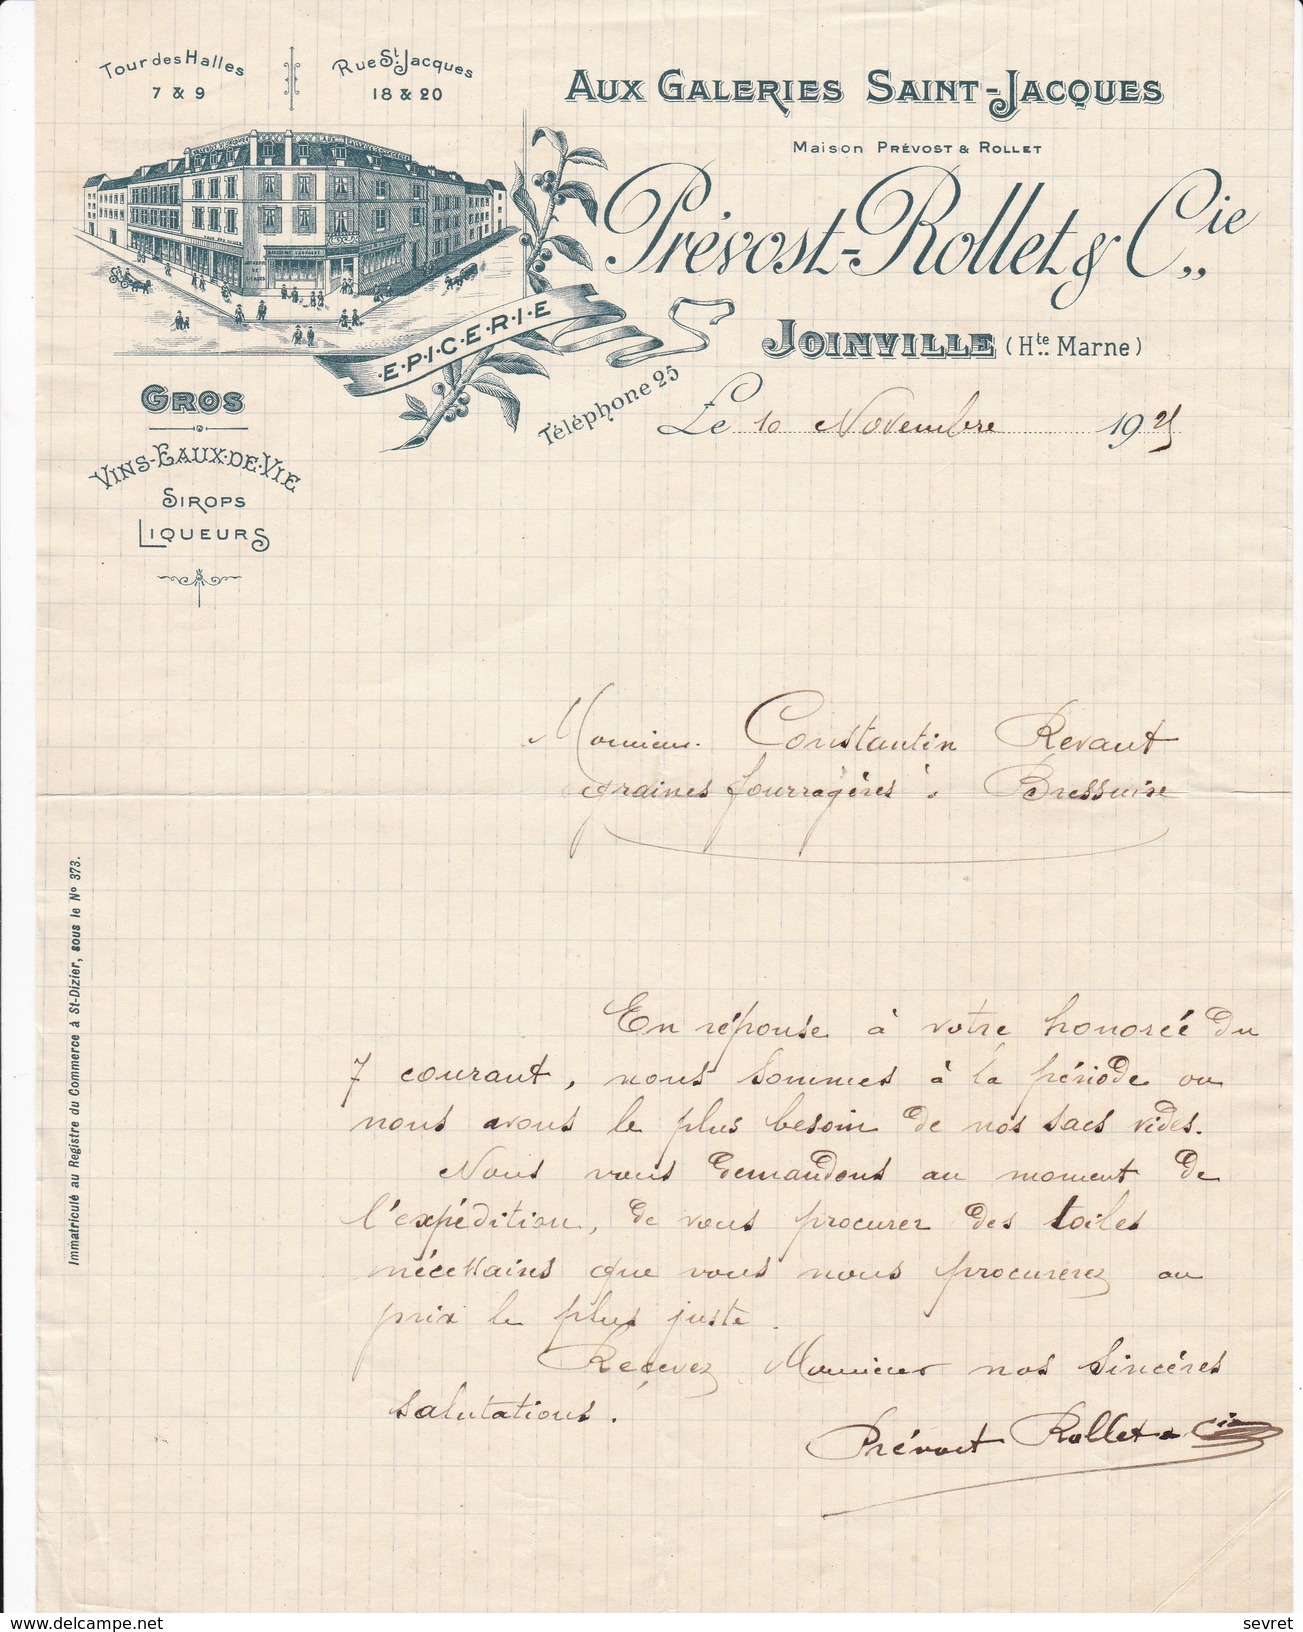 Tour des Halles
7 & 9
Rue St. Jacques
18 & 20
AUX GALERIES SAINT-JACQUES
Maison PRÉVOST & ROLLET
Prévost-Rollet & Cie
EPICERIE
JOINVILLE (Hte. Marne)
Téléphone 25
Le 10 Novembre 1925
GROS
VINS-EAUX-DE-VIE
SIROPS
LIQUEURS
Monsieur Constantin Revaut
graines fourragères à Bressuire
Immatriculé au Registre du Commerce à St-Dizier, sous le No 373.
En réponse à votre honorée du
7 courant, nous sommes à la période ou
nous avons le plus besoin de nos sacs vides.
Nous vous demandons au moment de
l'expédition, de vous procurer des toiles
nécessaires que vous nous procurerez au
prix le plus juste.
Reçevez Monsieur nos sincères
salutations.
Prévost Rollet & Cie
delcampe.net
sevret